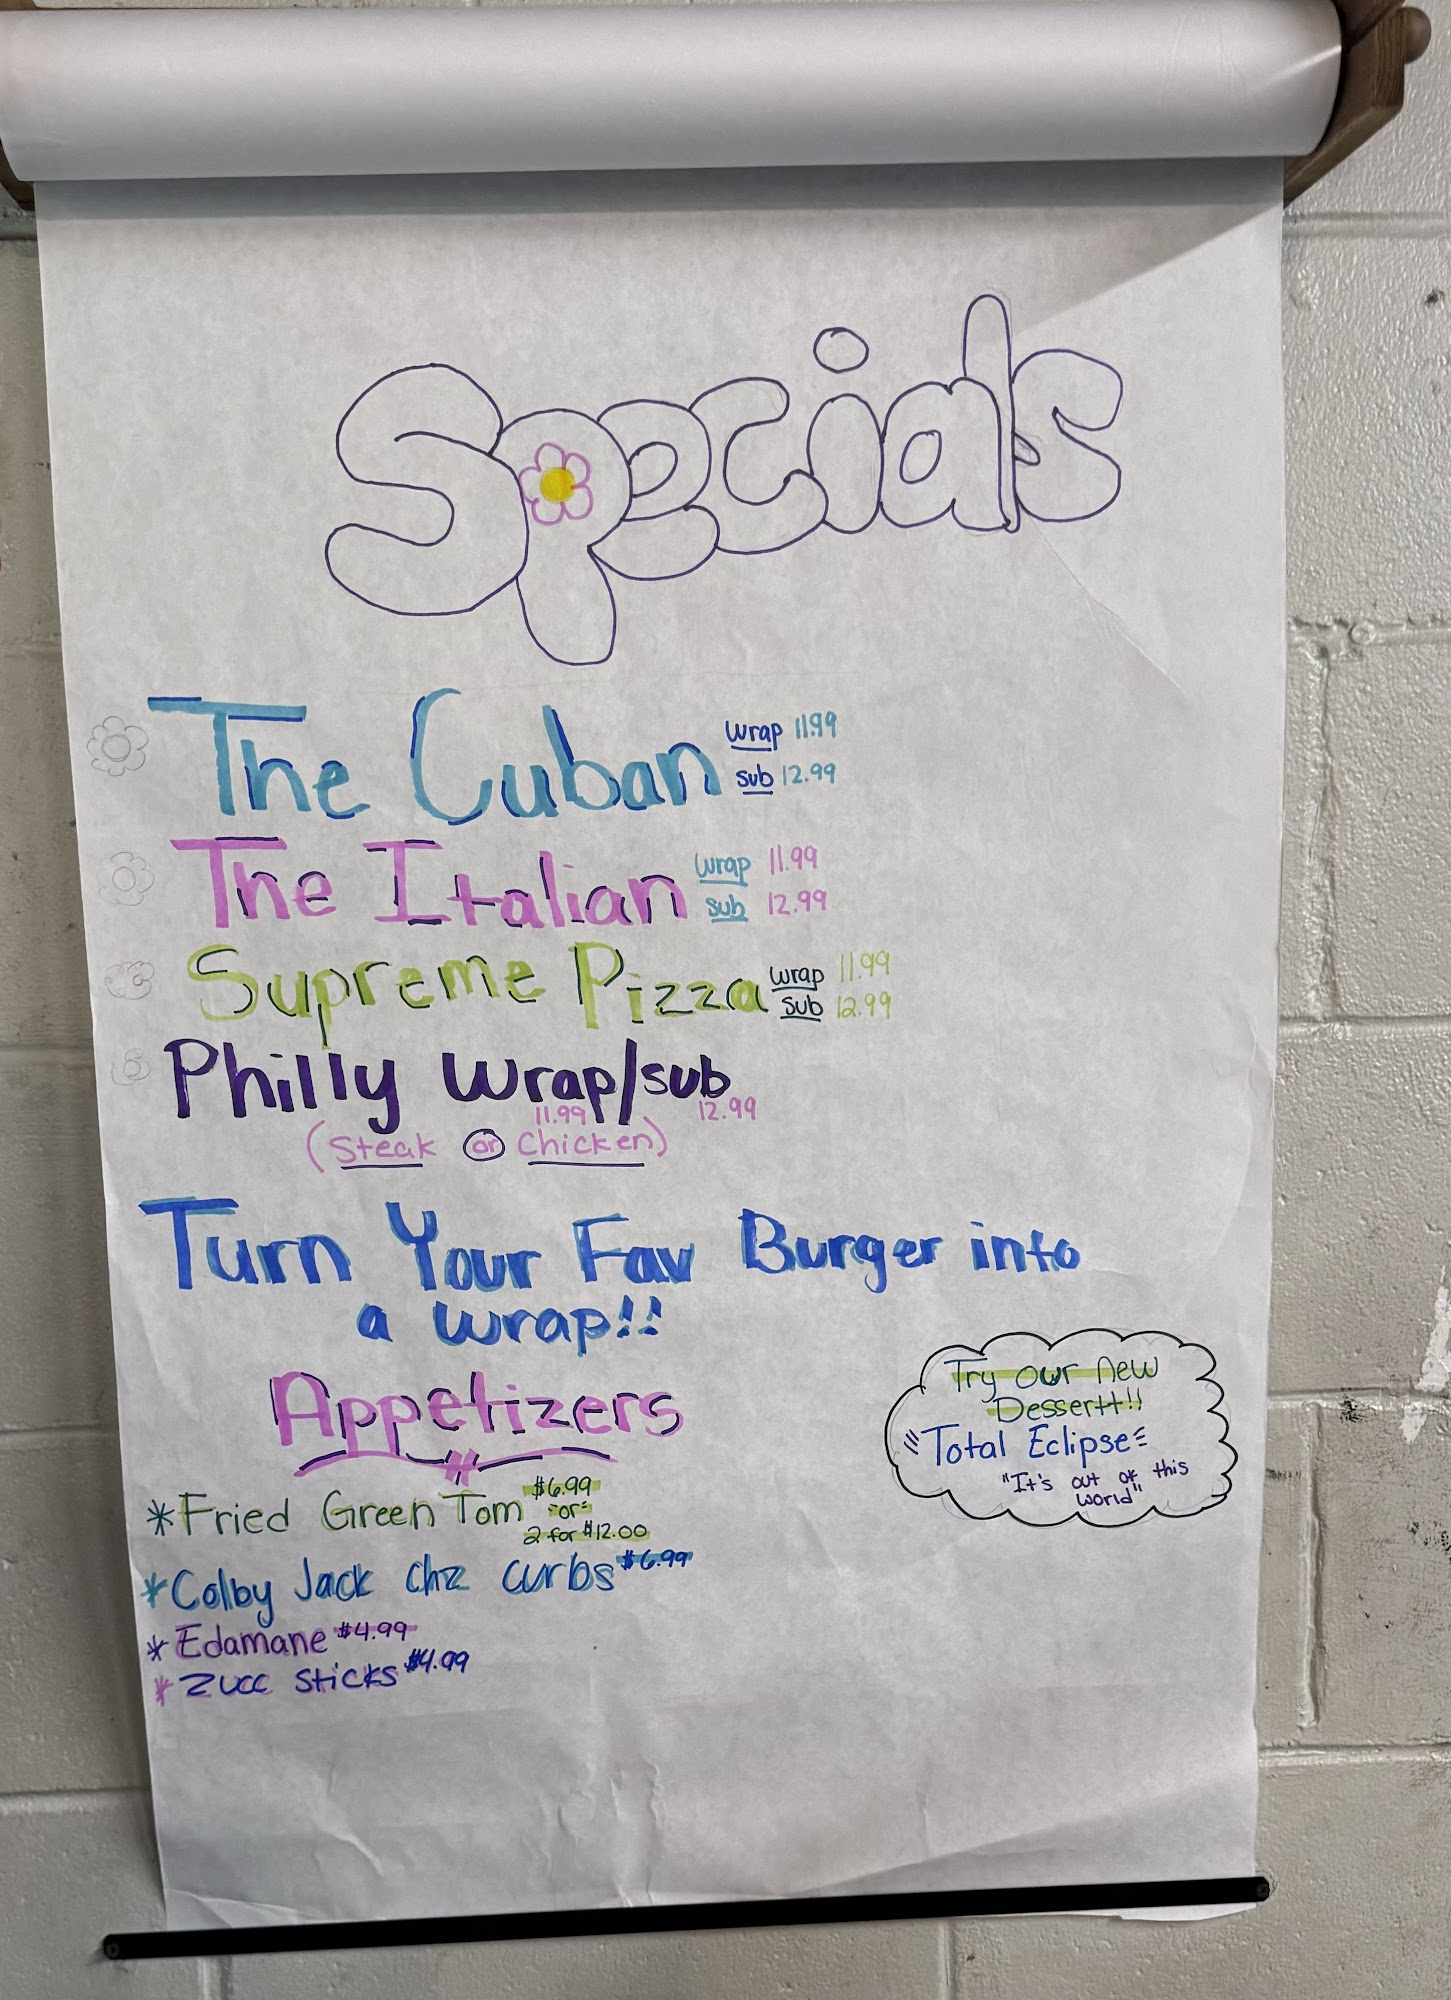 Specials
The Cuban wrap 11.99
sub 12.99
The Italian wrap 11.99
sub 12.99
Supreme Pizza wrap 11.99
sub 12.99
Philly wrap/sub
11.99 12.99
(Steak or Chicken)
Turn Your Fav Burger into
a wrap!!
Appetizers
*Fried Green Tom $6.99
-or-
2 for $12.00
*Colby Jack chz curbs $6.99
*Edamane $4.99
*Zucc sticks $4.99
Try our new
Dessertt!!
Total Eclipse
"It's out of this
world"